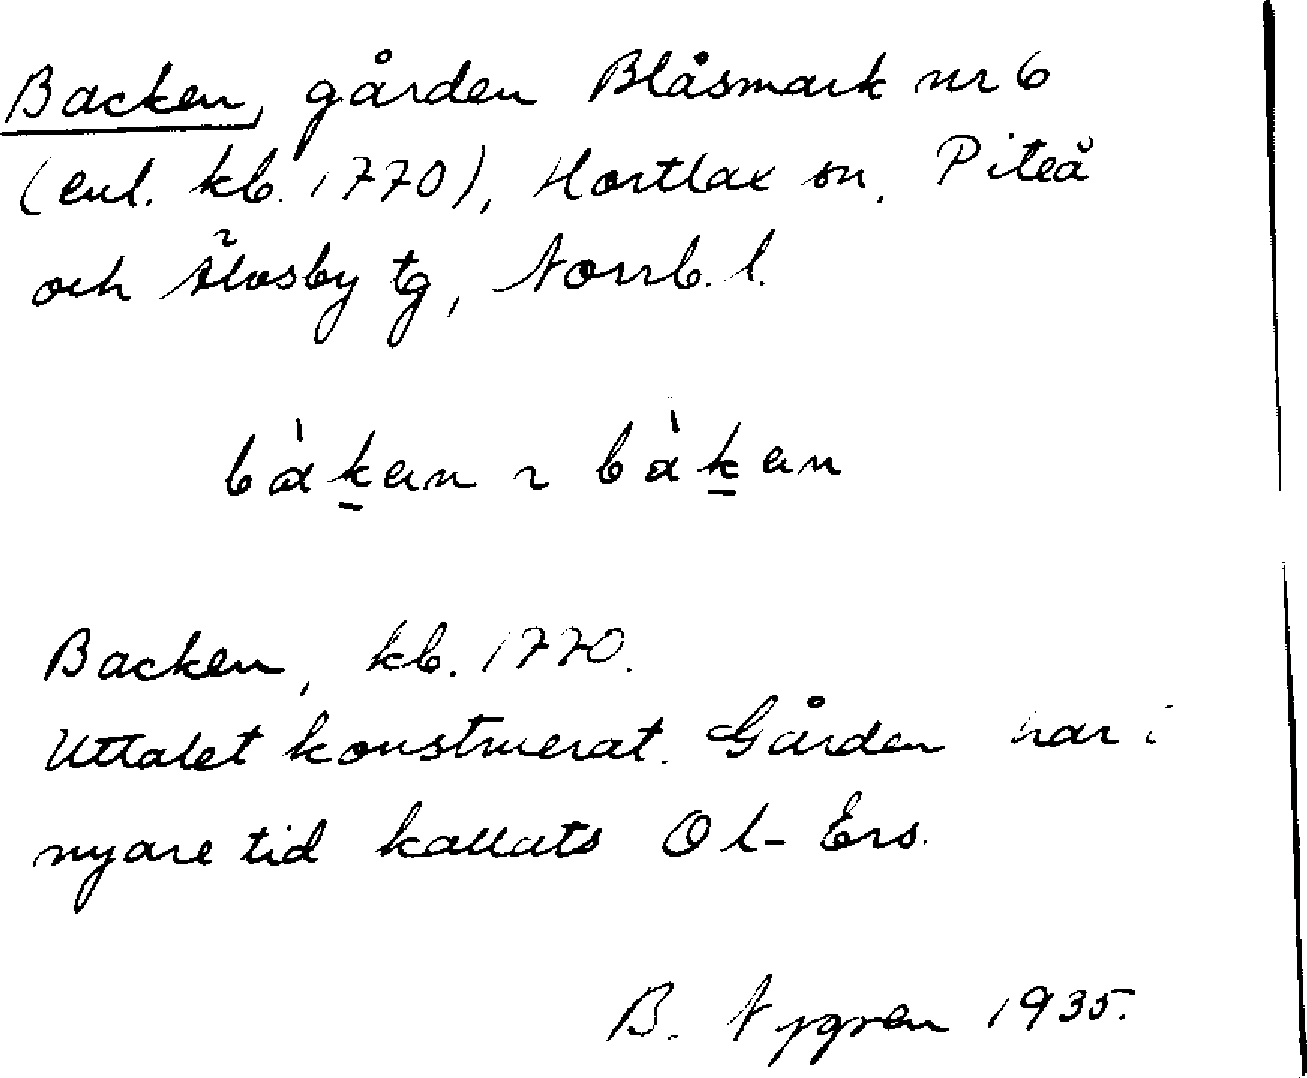 Backen, gården Blåsmark nr 6
(enl. kb. 1770), Hortlax sn. Piteå
och Älvsby tg, Norrb. l.
bàk̠en ~ bàk̠en
Backen, kb. 1770.
Uttalet konstruerat. Gården har i
nyare tid kallats Ol-Ers.
B. Nygren 1935.